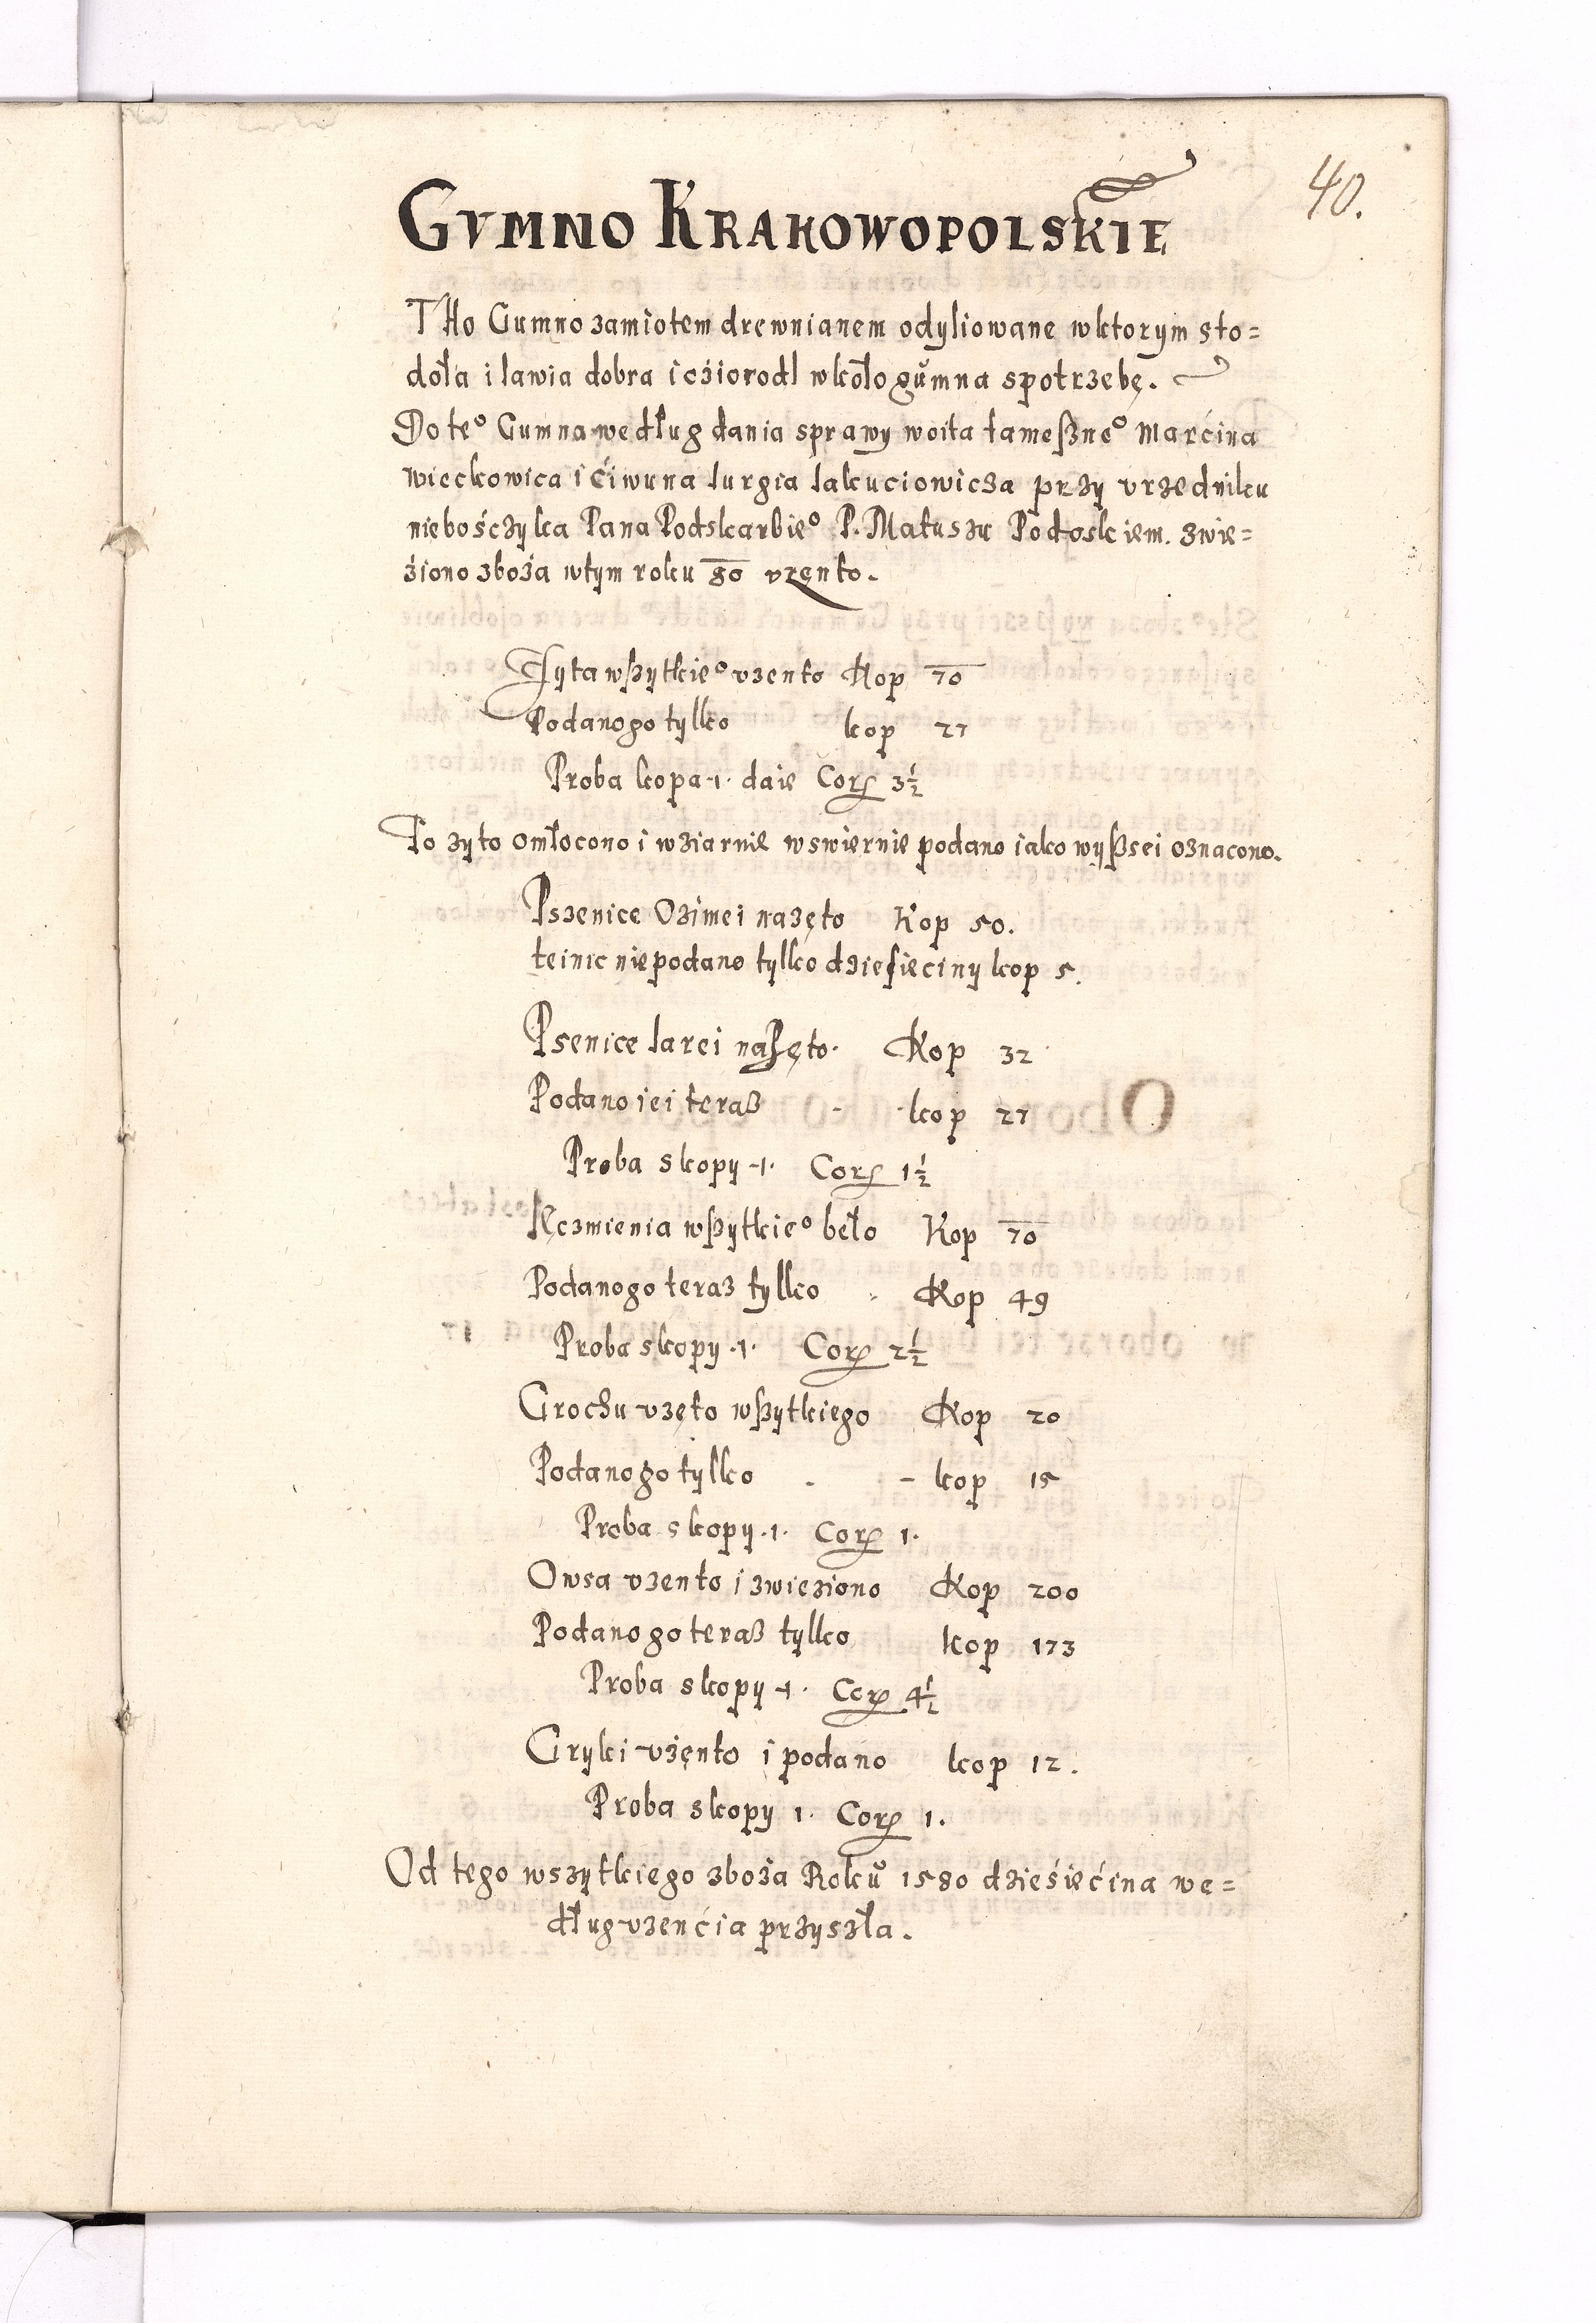 40.
GVMNO KRAKOWOPOLSKIE
THo Gumno zamiotem drewnianem odyliowane wktorym sto=
doła i lawia dobra i cżiorodl wkoło gŭmna spotrzebę.
Do te° Gumna według dania sprawy woita tameßne° Marćina
wieckowica i ćiwuna Iurgia Iakuciowicza przy vrzedniku
niebośczyka Pana Podskarbie° P. Matuszu Podoskiem. zwie=
źiono zboża wtym roku 80 vzento.
Żyta wßytkie° vzento Kop 70
Podanogo tylko kop 27
Proba kopa 1. daie Corß 3½
To zyto omłocono i wziarnie wswiernie podano iako wyßsei oznacono.
Pszenice Ozimei nazęto Kop 50.
tei nic niepodano tylko dziesieciny kop 5.
Psenice Iarei nażęto. Kop 32
Podano iei teraß - kop 27
Proba skopy 1. Corß 1½
Ięczmienia wßytkie° beło Kop 70
Podanogo teraz tylko Kop 49
Proba skopy .1. Corß 2½
Grochu vzęto wßytkiego Kop 20
Podanogo tylko - kop 15
Proba skopy .1. Corß 1.
Owsa vzento i zwieziono Kop 200
Podano go teraß tylko kop 173
Proba skopy 1. Corß 4½
Gryki vżento i podano kop 12.
Proba skopy 1. Corß 1.
Od tego wszytkiego zboża Rokŭ 1580 dzieśiećina we=
dług vzenćia przyszła.